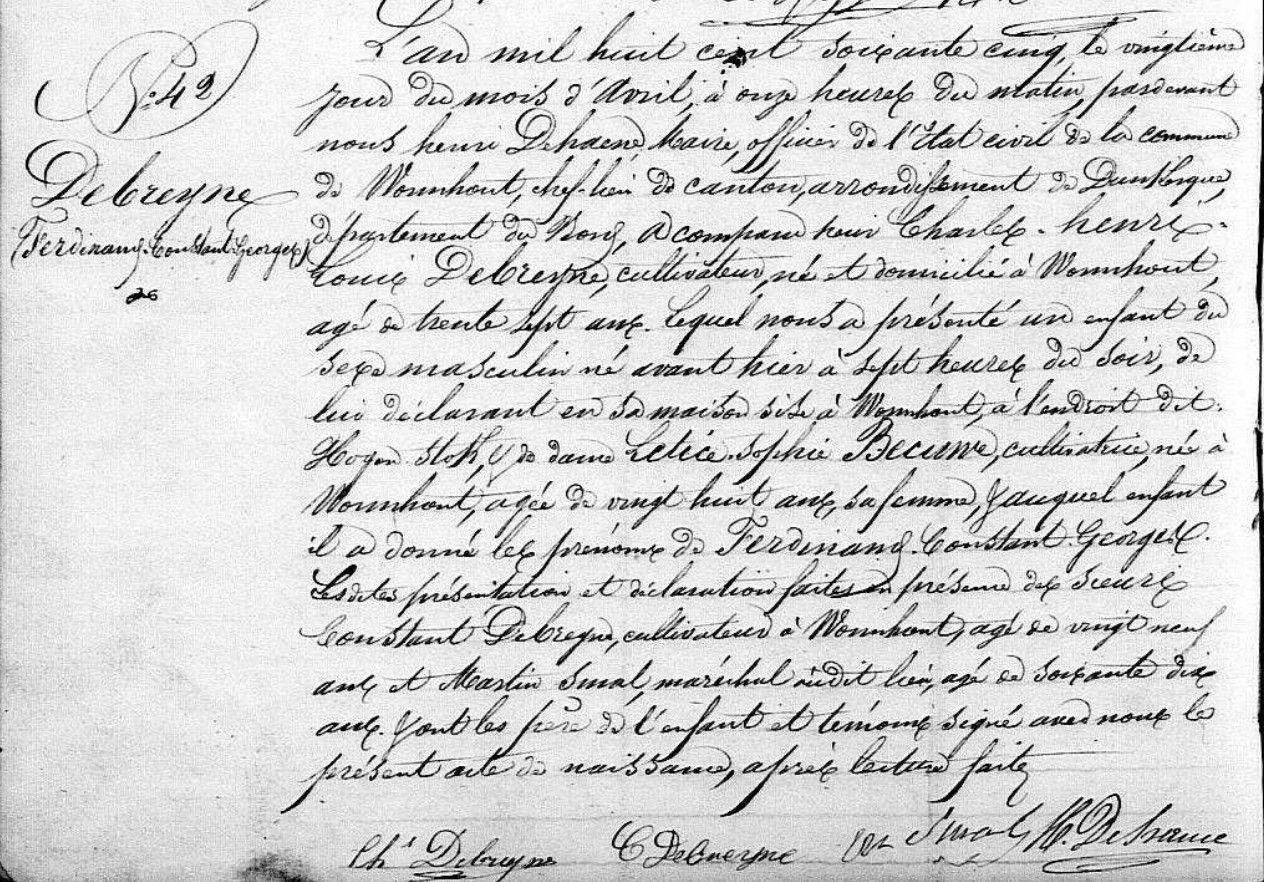 N° 42
Debreyne
(Ferdinand-Constant-Georges)
L'an mil huit cent soixante cinq, le vingtième
jour du mois d'Avril, à onze heures du matin, pardevant
nous henri Dehaene, Maire, officier de l'Etat civil de la commune
de Wormhout, chef-lieu de canton, arrondissement de Dunkerque,
département du Nord, a comparu sieur Charles-henri-
Louis Debreyne, cultivateur, né et domicilié à Wormhout,
agé de trente sept ans. Lequel nous a présenté un enfant du
sexe masculin né avant hier à sept heures du soir, de
lui déclarant en sa maison sise à Wormhout, à l'endroit dit:
de dame Letice-Sophie Becuwe, cultivatrice, née à
Wormhout, agée de vingt huit ans, sa femme, & auquel enfant
il a donné les prénoms de Ferdinand-Constant-Georges.
Lesdites présentation et déclaration faites en présence des sieurs
Constant Debreyne, cultivateur à Wormhout, agé de vingt neuf
ans et Martin Smal, maréchal audit lieu, agé de soixante dix
ans. & ont les père de l'enfant et témoins signé avec nous le
présent acte de naissance, après lecture faite
Ch^s Debreyne C Debreyne Smal H. Dehaene